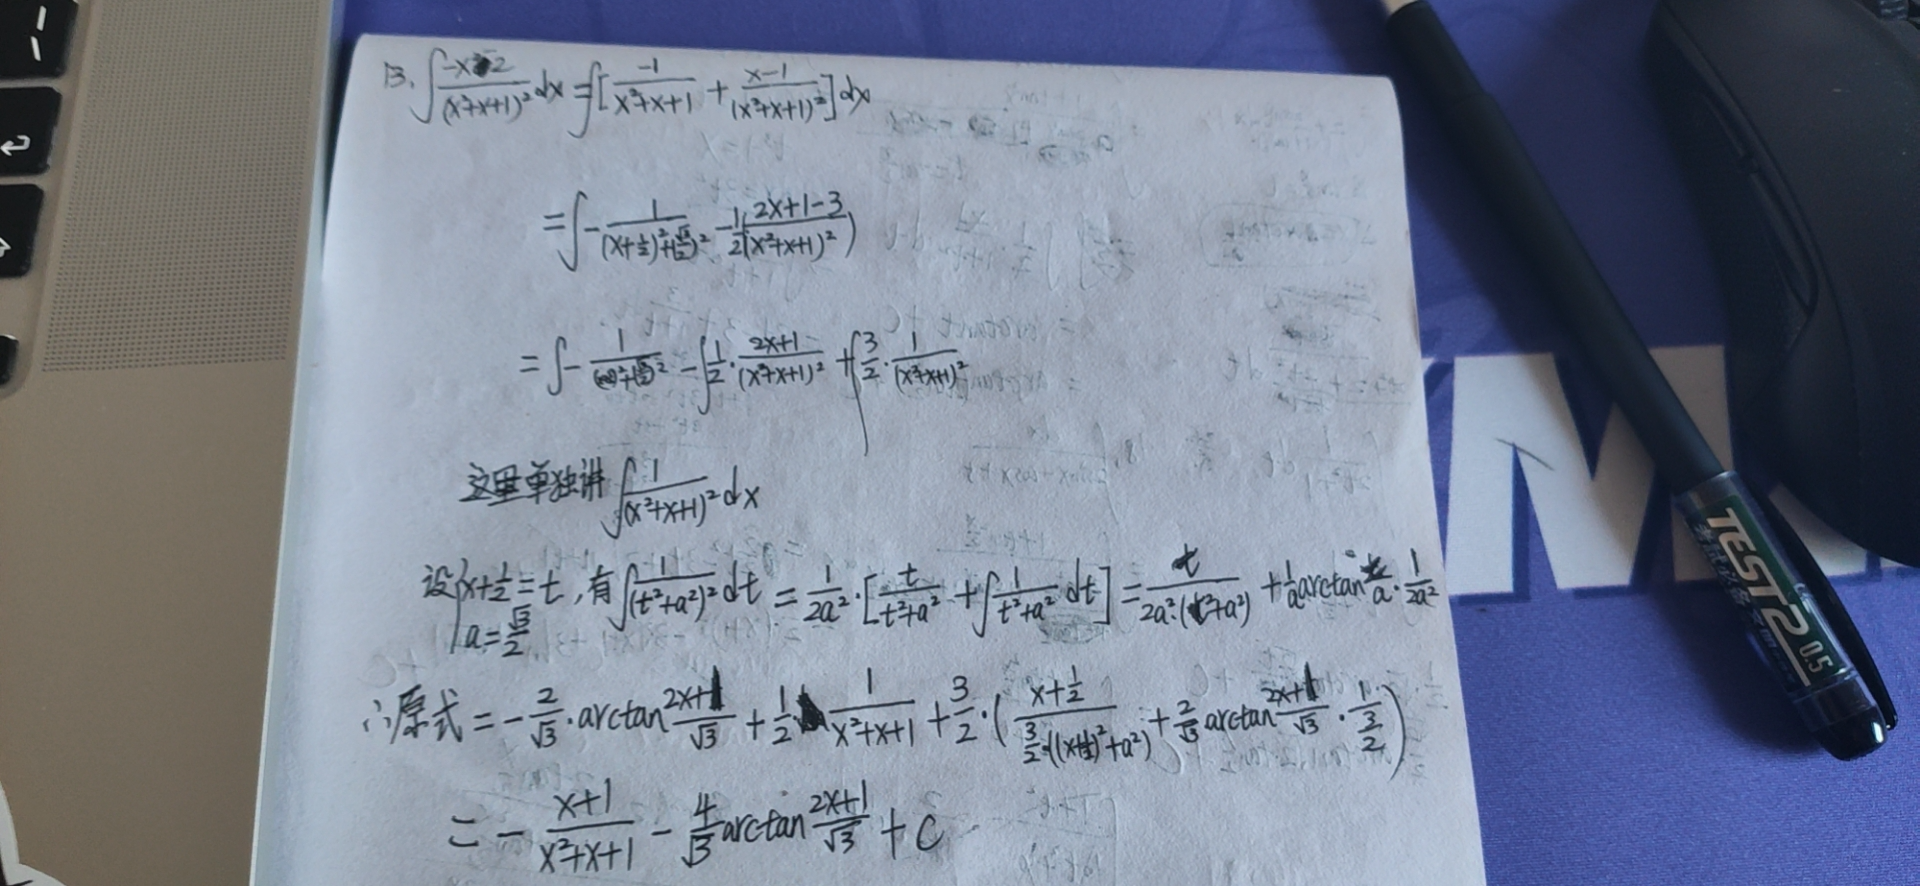 13. ∫ (-x²-2)/(x²+x+1)² dx = ∫[ -1/(x²+x+1) + (x-1)/(x²+x+1)² ] dx
= ∫ - 1/((x+1/2)²+(√3/2)²) - 1/2 ( (2x+1-3)/(x²+x+1)² )
= ∫ - 1/( )²+(√3/2)² - ∫ 1/2 · (2x+1)/(x²+x+1)² + ∫ 3/2 · 1/(x²+x+1)²
这里单独讲 ∫ 1/(x²+x+1)² dx
设{ x+1/2=t, a=√3/2 , 有 ∫ 1/(t²+a²)² dt = 1/(2a²) · [ t/(t²+a²) + ∫ 1/(t²+a²) dt ] = t/(2a²·(t²+a²)) + 1/a arctan t/a · 1/(2a²)
∴原式 = - 2/√3 · arctan (2x+1)/√3 + 1/2 1/(x²+x+1) + 3/2 · ( (x+1/2)/(3/2·((x+1/2)²+a²)) + 2/√3 arctan (2x+1)/√3 · 1/(3/2) )
= - (x+1)/(x²+x+1) - 4/√3 arctan (2x+1)/√3 + C
TEST2 0.5
M